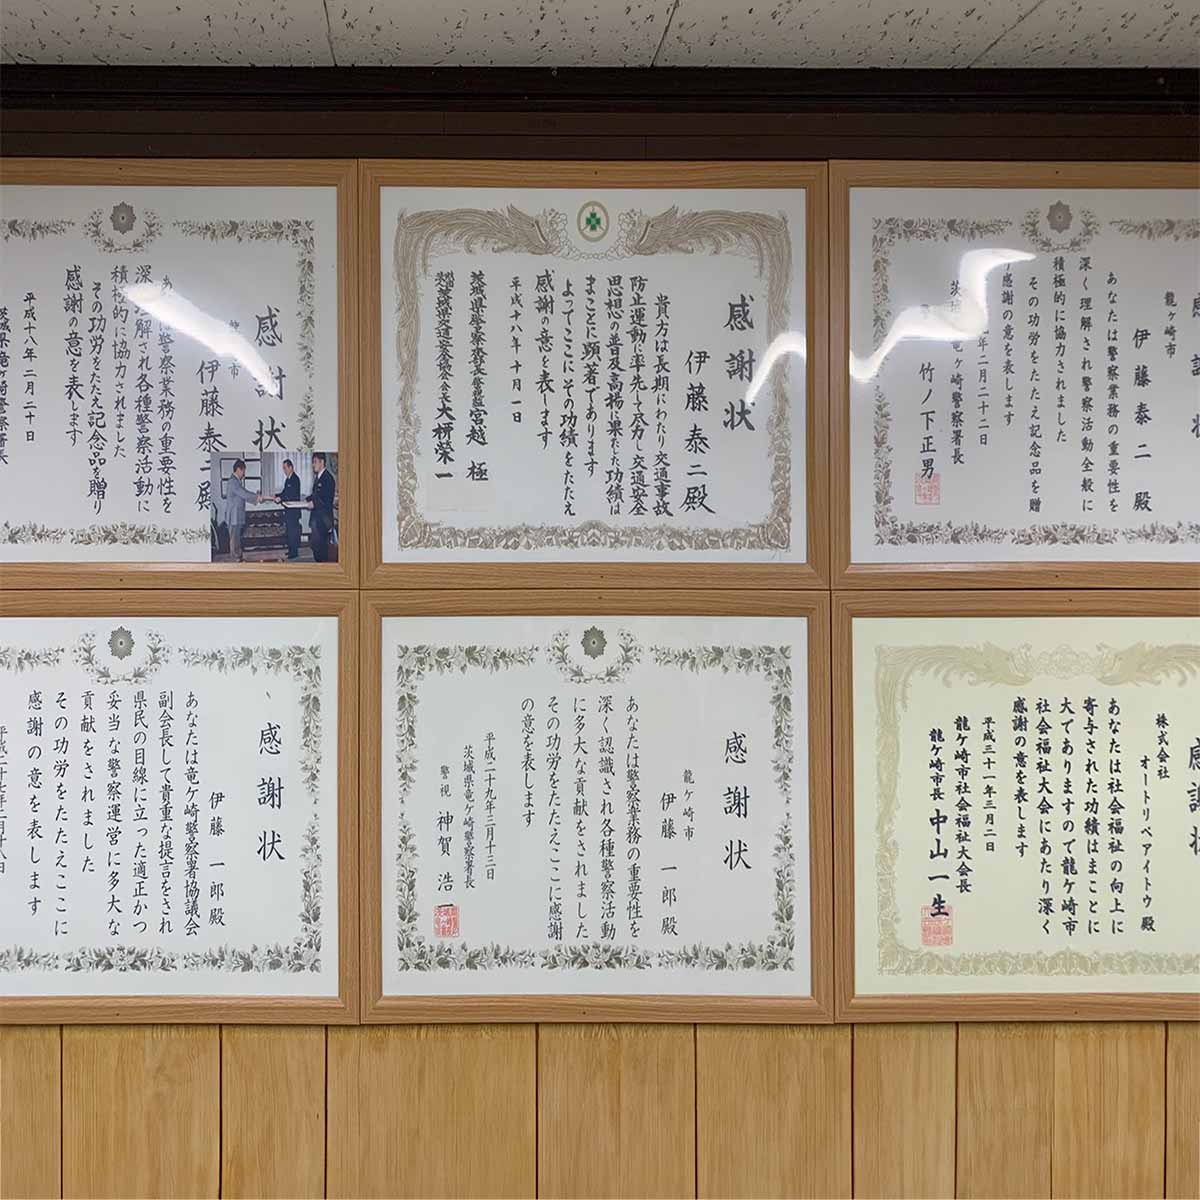 感謝状
伊藤泰二殿
警察業務の重要性を
理解され各種警察活動に
積極的に協力されました
その功労をたたえ記念品を贈り
感謝の意を表します
平成十八年二月二十日
茨城県竜ケ崎警察署長
感謝状
伊藤泰二殿
貴方は長期にわたり交通事故
防止運動に率先して尽力し交通安全
思想の普及高揚に果たした功績は
まことに顕著であります
よってここにその功績をたたえ
感謝の意を表します
平成十八年十月一日
茨城県警察本部長警視監宮越極
大
榮一
龍ケ崎市
伊藤泰二殿
あなたは警察業務の重要性を
深く理解され警察活動全般に
積極的に協力されました
その功労をたたえ記念品を贈
り感謝の意を表します
年二月二十二日
茨城県竜ケ崎警察署長
竹ノ下正男
感謝状
伊藤一郎殿
あなたは竜ケ崎警察署協議会
副会長として貴重な提言をされ
県民の目線に立った適正かつ
妥当な警察運営に多大な
貢献をされました
その功労をたたえここに
感謝の意を表します
平成二十七年二月十八日
感謝状
龍ケ崎市
伊藤一郎殿
あなたは警察業務の重要性を
深く認識され各種警察活動
に多大な貢献をされました
その功労をたたえここに感謝
の意を表します
平成二十九年三月十三日
茨城県竜ケ崎警察署長
警視神賀浩一
感謝状
株式会社
オートリペアイトウ殿
あなたは社会福祉の向上に
寄与された功績はまことに
大でありますので龍ケ崎市
社会福祉大会にあたり深く
感謝の意を表します
平成三十一年三月二日
龍ケ崎市社会福祉大会長
龍ケ崎市長中山一生